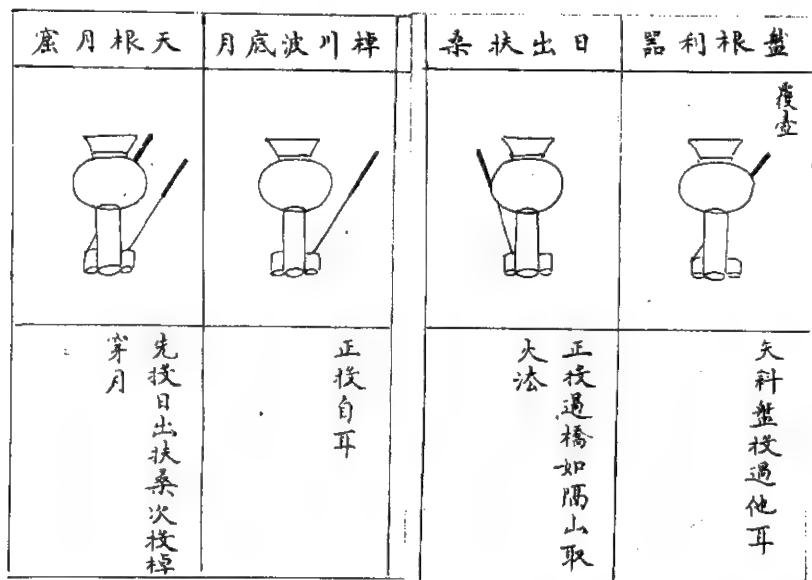 覆壺
盤根利器
矢斜盤投過他耳
日出扶桑
正投過橋如隔山取
火法
棹川波底月
正投自耳
天根月窟
先投日出扶桑次投棹
穿月